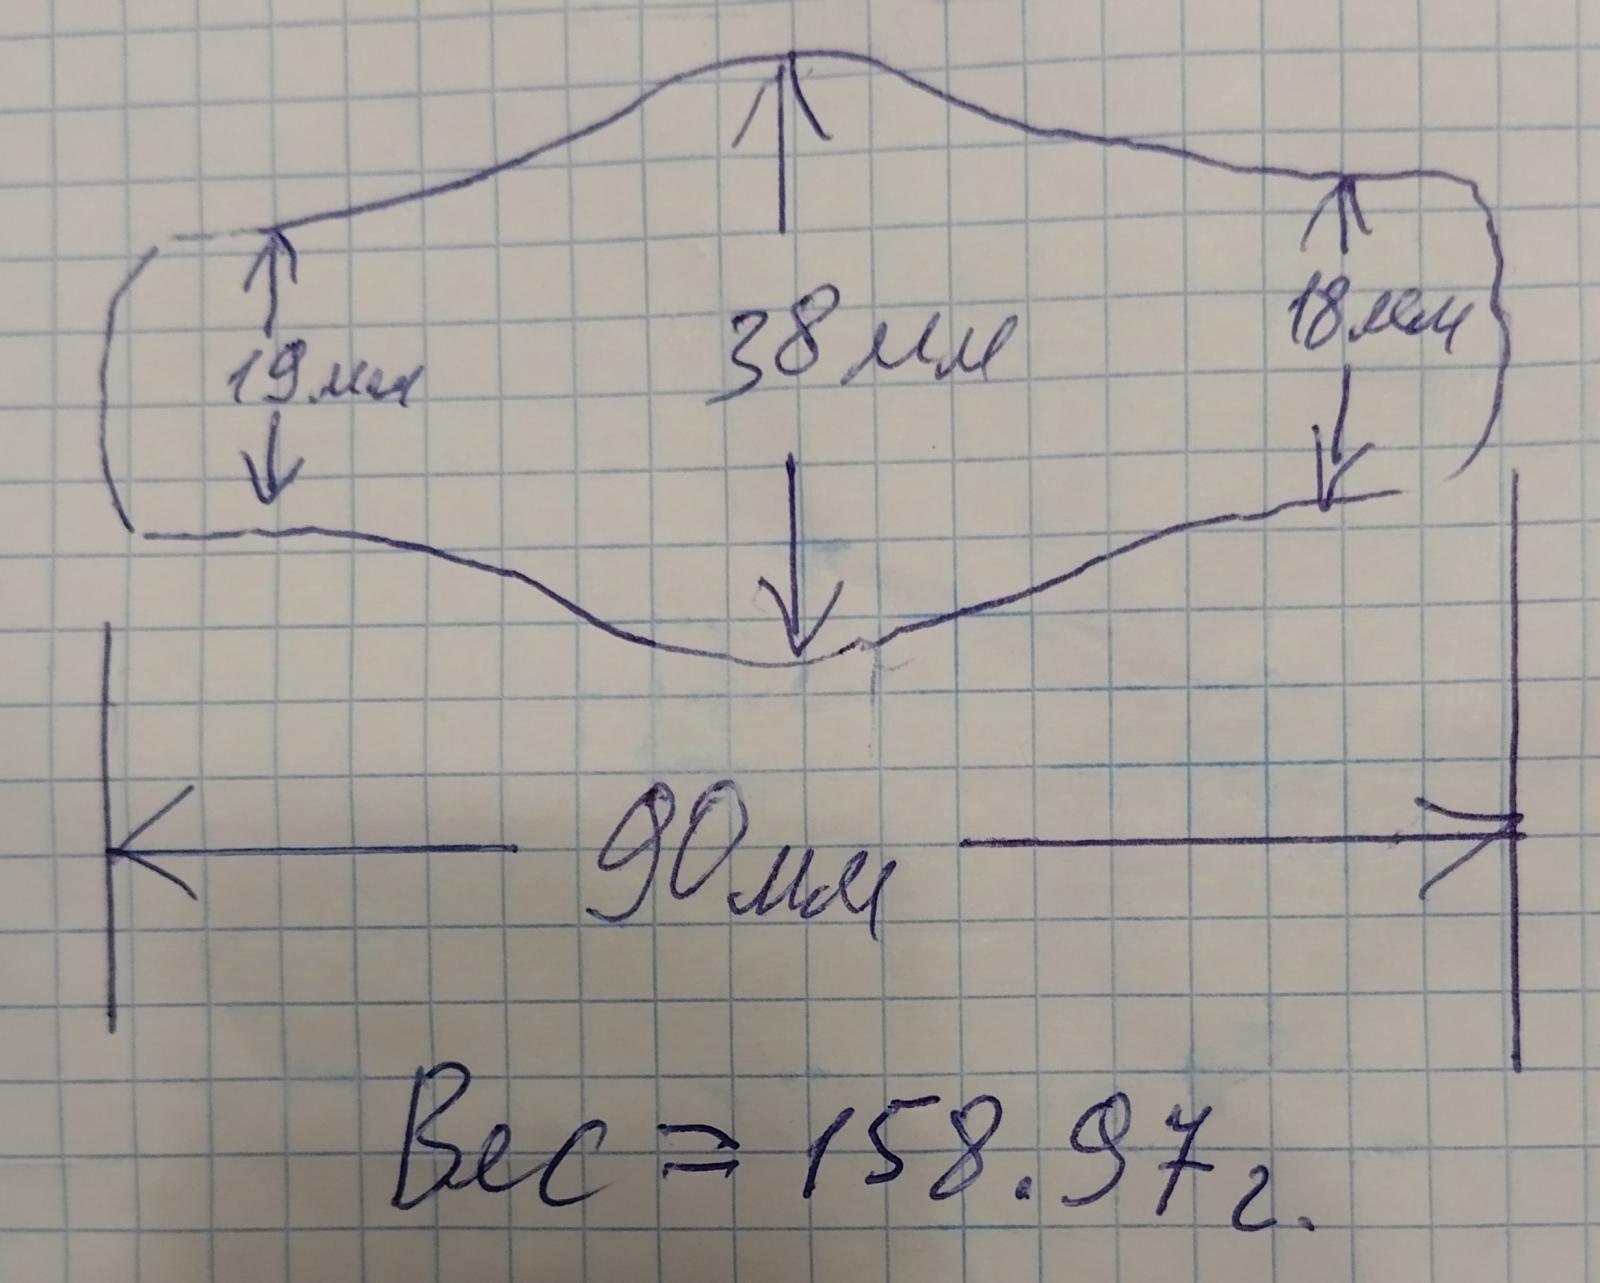 38 мм
18 мм
19 мм
90 мм
Вес = 158.97 г.